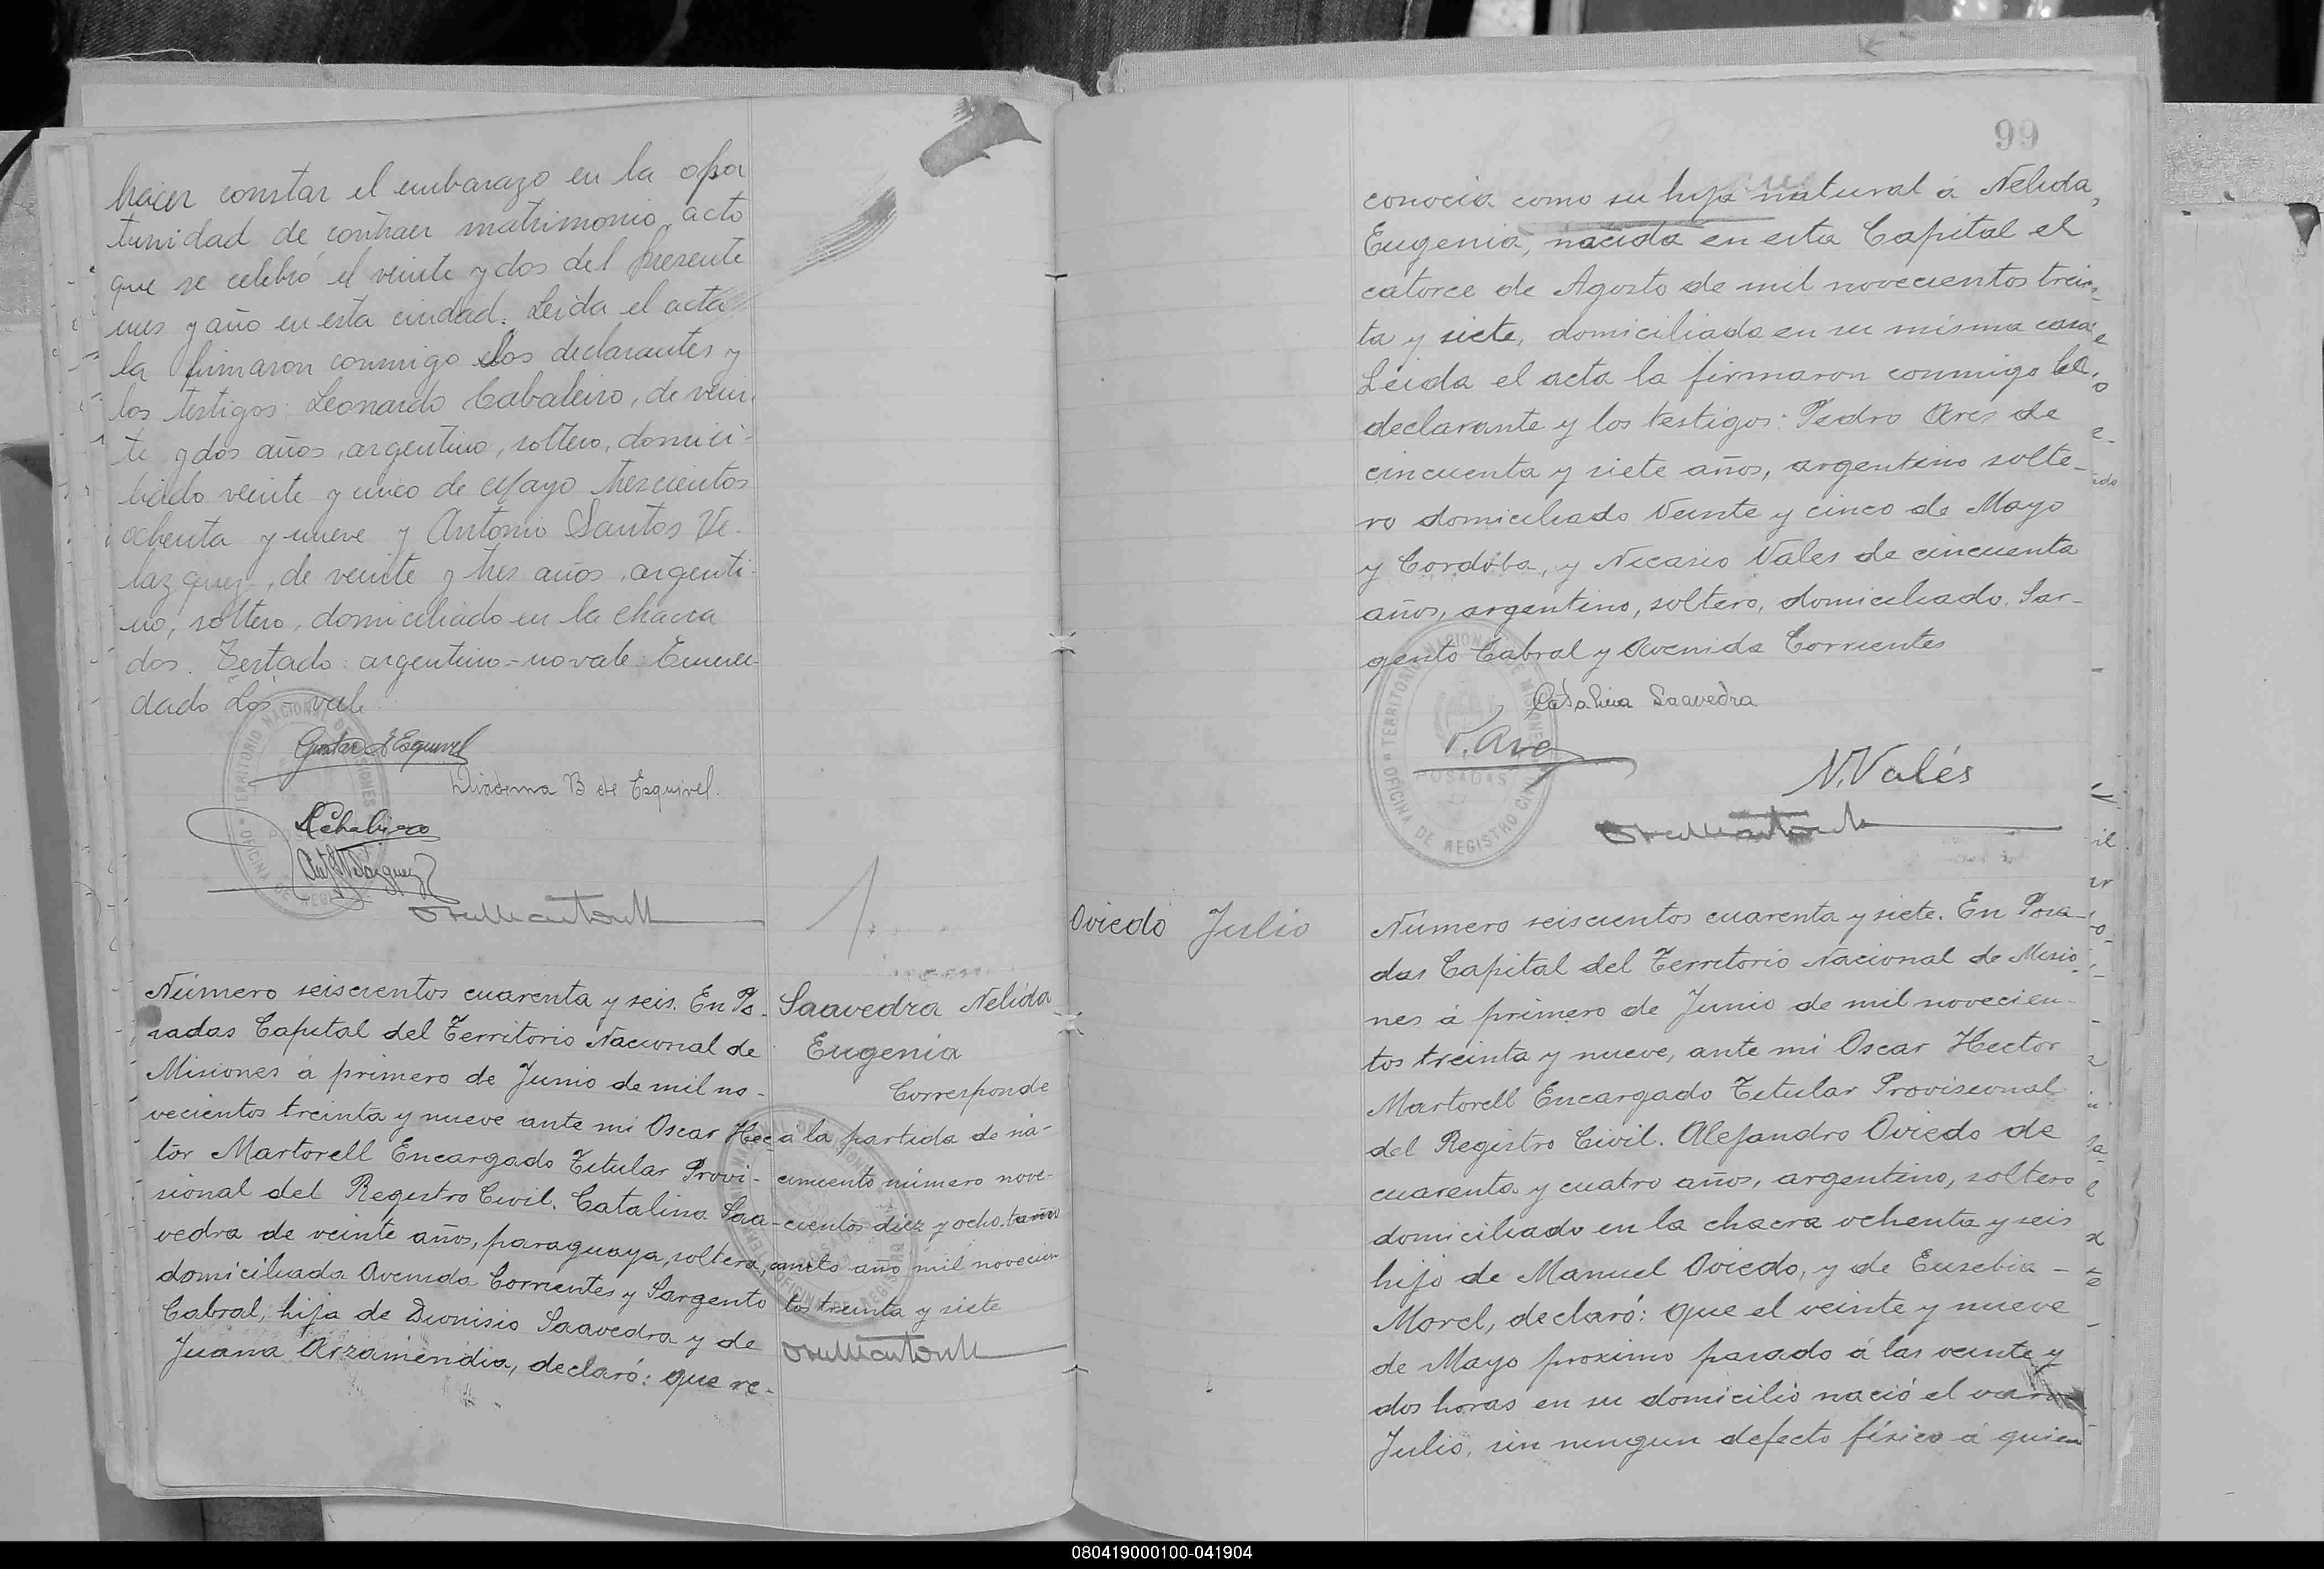 hacer constar el embarazo en la opor
tunidad de contraer matrimonio, acto
que se celebró el veinte y dos del presente
mes y año en esta ciudad. Leida el acta
la firmaron conmigo los declarantes y
los testigos: Leonardo Cabaleiro, de vein
te y dos años, argentino, soltero, domici-
liado veinte y cinco de Mayo trescientos
ochenta y nueve y Antonio Santos Ve-
lazquez, de veinte y tres años, argenti-
no, soltero, domiciliado en la chacra
dos. Testado: argentino-no vale. Enmen-
dado Los-vale.
TERRITORIO NACIONAL DE MISIONES
OFICINA DE REGISTRO
Diadema B de Esquivel.
Número seiscientos cuarenta y seis. En Po-
sadas Capital del Territorio Nacional de
Misiones á primero de Junio de mil no-
vecientos treinta y nueve ante mi Oscar Hec-
tor Martorell Encargado Titular Provi-
sional del Registro Civil. Catalina Saa-
vedra de veinte años, paraguaya, soltera,
domiciliada Avenida Corrientes y Sargento
Cabral, hija de Dionisio Saavedra y de
Juana Arzamendia, declaró: que re-
Saavedra Nelida
Eugenia
Corresponde
a la partida de na-
cimiento número nove-
cientos diez y ocho, tomo
año mil novecien
tos treinta y siete
99
conocia como su hija natural á Nelida,
Eugenia, nacida en esta Capital el
catorce de Agosto de mil novecientos trein-
ta y siete, domiciliada en su misma casa
Leida el acta la firmaron conmigo la
declarante y los testigos: Pedro Ares de
cincuenta y siete años, argentino solte-
ro domiciliado Veinte y cinco de Mayo
y Cordoba, y Nicasio Vales de cincuenta
años, argentino, soltero, domiciliado, Sar-
gento Cabral y Avenida Corrientes
Catalina Saavedra
TERRITORIO NACIONAL DE MISIONES
POSADAS
OFICINA DE REGISTRO CIVIL
N. Valés
Oviedo Julio
Número seiscientos cuarenta y siete. En Posa-
das Capital del Territorio Nacional de Misio-
nes á primero de Junio de mil novecien-
tos treinta y nueve, ante mi Oscar Hector
Martorell Encargado Titular Provisional
del Registro Civil. Alejandro Oviedo de
cuarenta y cuatro años, argentino, soltero
domiciliado en la chacra ochenta y seis
hijo de Manuel Oviedo, y de Eusebia -
Morel, declaró: que el veinte y nueve
de Mayo proximo pasado á las veinte y
dos horas en su domicilio nació el varon
Julio, sin ningun defecto físico á quien
080419000100-041904